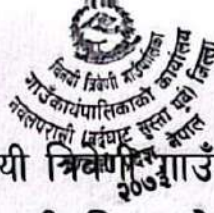 विनयी त्रिवेणी गाउँपालिका
गाउँकार्यपालिकाको कार्यालय
नवलपरासी (बर्दघाट सुस्ता पूर्व) जिल्ला
नेपाल
२०७३
यी त्रिवेणी गाउँ